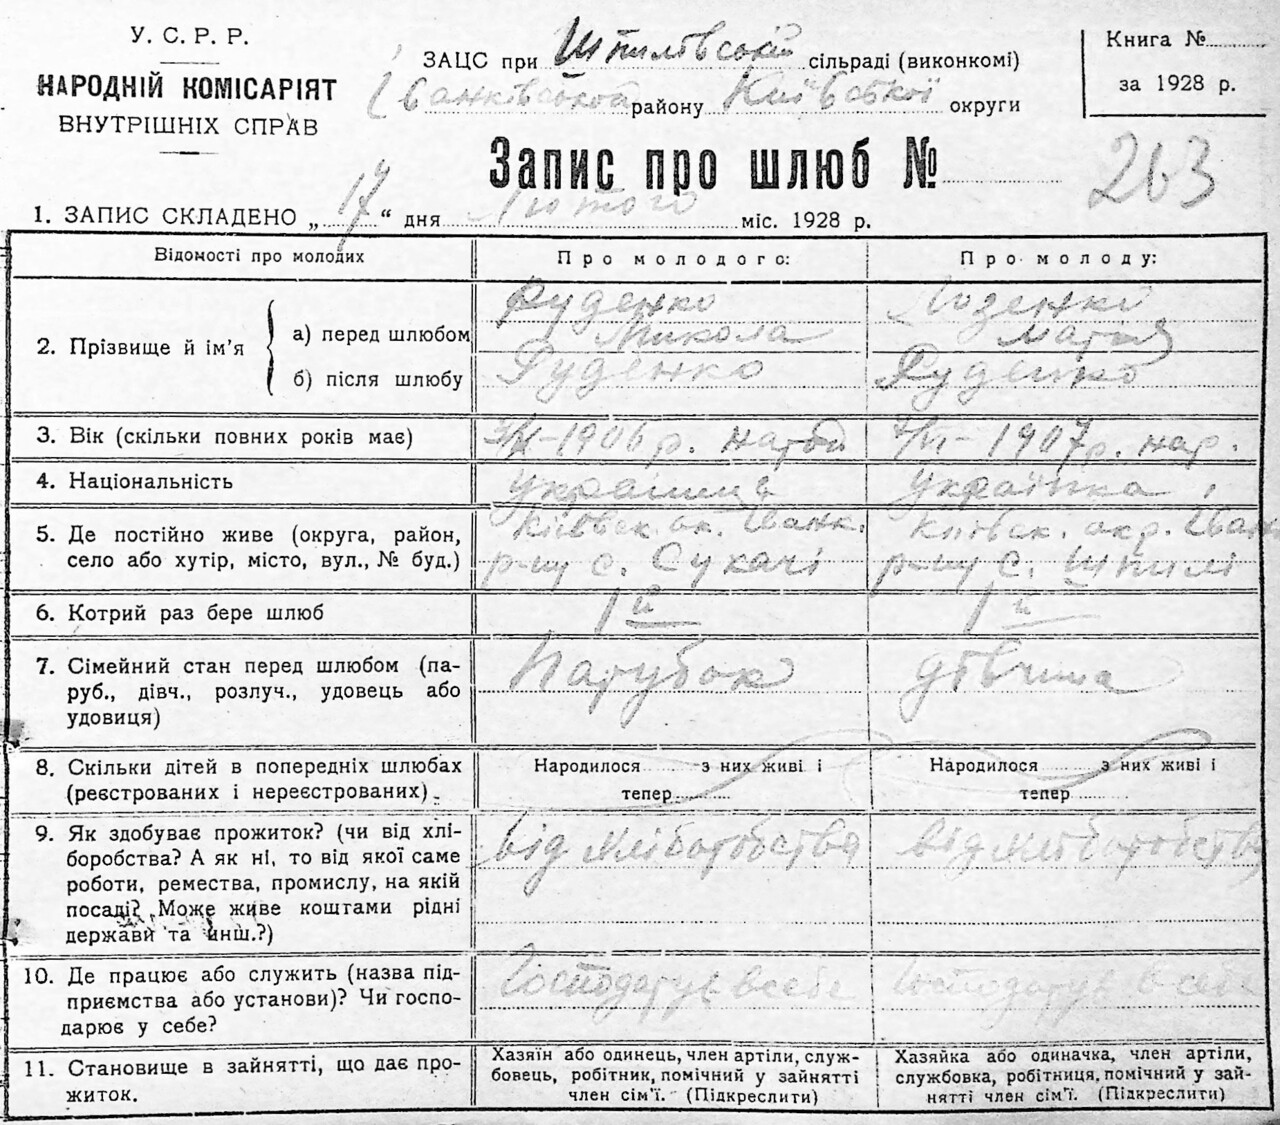 У. С. Р. Р.
НАРОДНІЙ КОМІСАРІЯТ
ВНУТРІШНІХ СПРАВ
ЗАЦС при Шпилівській сільраді (виконкомі)
Іванківського району Київської округи
Книга №
за 1928 р.
Запис про шлюб № 263
1. ЗАПИС СКЛАДЕНО „ 17 “ дня Лютого міс. 1928 р.
Відомості про молодих
Про молодого:
Про молоду:
2. Прізвище й ім’я
а) перед шлюбом
Руденко
Микола
б) після шлюбу
Руденко
Руденко
3. Вік (скільки повних років має)
1906 р.
1907 р. нар.
4. Національність
українець
українка
5. Де постійно живе (округа, район,
село або хутір, місто, вул., № буд.)
Київск. ок. Іванк.
р-ну с. Сукачі
Київск. окр. Іван
р-ну с. Шпилі
6. Котрий раз бере шлюб
1й
1й
7. Сімейний стан перед шлюбом (па-
руб., дівч., розлуч., удовець або
удовиця)
Парубок
дівчина
8. Скільки дітей в попередніх шлюбах
(реєстрованих і нереєстрованих).
Народилося з них живі і
тепер
Народилося з них живі і
тепер
9. Як здобуває прожиток? (чи від хлі-
боробства? А як ні, то від якої саме
роботи, ремества, промислу, на якій
посаді? Може живе коштами рідні
держави та инш.?)
від хліборобства
від хліборобства
10. Де працює або служить (назва під-
приємства або установи)? Чи госпо-
дарює у себе?
Господарує в себе
Господарує в себе
11. Становище в зайнятті, що дає про-
житок.
Хазяїн або одинець, член артіли, служ-
бовець, робітник, помічний у зайнятті
член сім’ї. (Підкреслити)
Хазяйка або одиначка, член артіли,
службовка, робітниця, помічний у зай-
нятті член сім’ї. (Підкреслити)